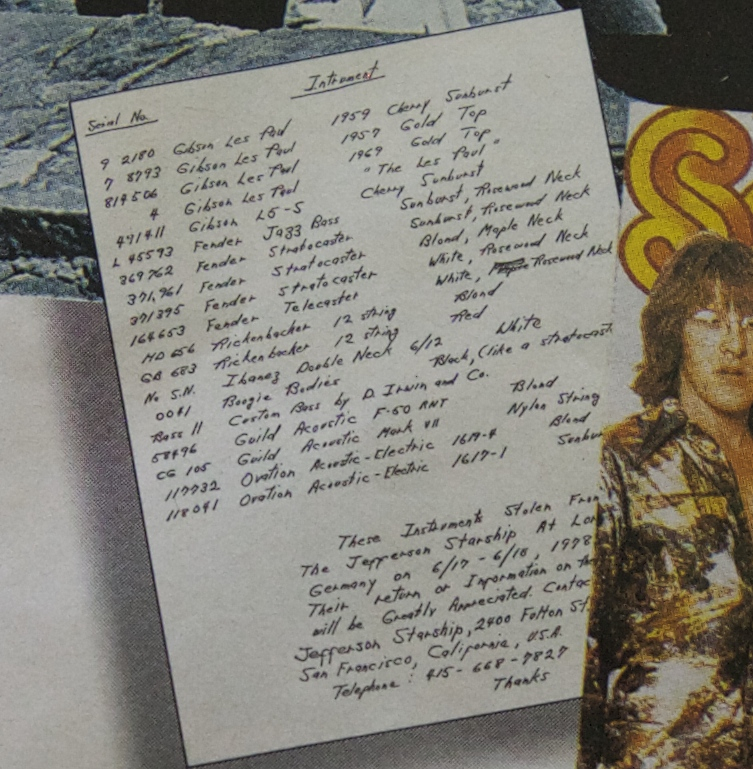 Intrument
Serial No.
9 2180 Gibson Les Paul 1959 Cherry Sunburst
7 8793 Gibson Les Paul 1957 Gold Top
814506 Gibson Les Paul 1969 Gold Top
4 Gibson Les Paul "The Les Paul"
491411 Gibson L5-S Cherry Sunburst
L 45593 Fender Jazz Bass Sunburst, Rosewood Neck
369762 Fender Stratocaster Sunburst, Rosewood Neck
371,961 Fender Stratocaster Blond, Maple Neck
371395 Fender Stratocaster White, Rosewood Neck
164653 Fender Telecaster White, Rosewood Neck
MD 656 Rickenbacker 12 string Blond
GB 683 Rickenbacker 12 string Red
No S.N. Ibanez Double Neck 6/12 White
0041 Boogie Bodies Black, (like a stratocast
Bass II Custom Bass by D. Irwin and Co.
58496 Guild Acoustic F-50 RNT Blond
CG 105 Guild Acoustic Mark VII Nylon String
117732 Ovation Acoustic-Electric 1619-4 Blond
118041 Ovation Acoustic-Electric 1617-1 Sunbur
These Instruments Stolen From
The Jefferson Starship At Lor
Germany on 6/17 - 6/18, 1978
Their return or Information on the
will be Greatly Appreciated. Contac
Jefferson Starship, 2400 Fulton St.
San Francisco, California, U.S.A.
Telephone: 415-668-7827
Thanks